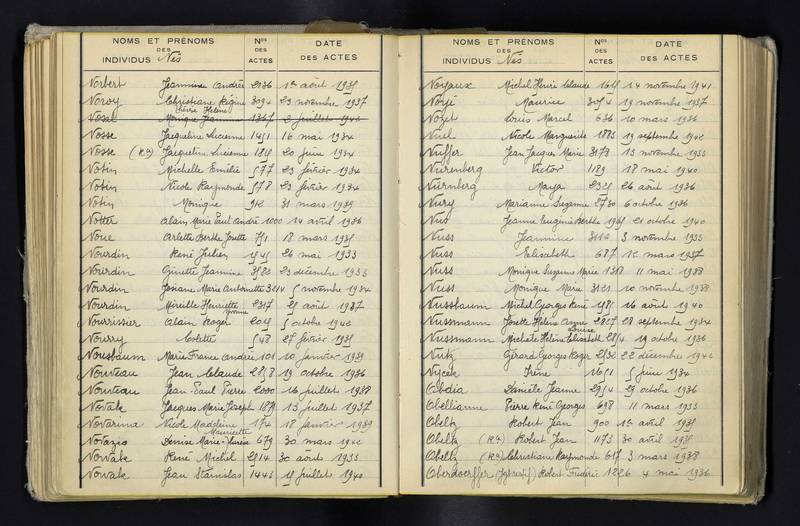 NOMS ET PRÉNOMS
DES
INDIVIDUS Nés
Nos
DES
ACTES
DATE
DES ACTES
Norbert Jeannine Andrée 2136 1er août 1935
Noroy Christiane Régine 3094 23 novembre 1937
Marie Hélène
Nosal Monique Jeannine 1367 2 juillet 1940
Nosse Jacqueline Lucienne 1451 16 mai 1934
Nosse (Ron) Jacqueline Lucienne 1819 20 juin 1934
Notin Michelle Emélie 577 23 février 1934
Notin Nicole Raymonde 578 23 février 1934
Notin Monique 912 31 mars 1939
Notter Alain Marie Paul André 1000 14 avril 1936
Noue Arlette Berthe Josette 751 18 mars 1935
Nourdin René Julien 1545 26 mai 1933
Nourdin Ginette Jeannine 3522 23 décembre 1933
Nourdin Josiane Marie Antoinette 3214 5 novembre 1934
Nourdin Mireille Henriette 2317 25 août 1937
Yvonne
Nourrissier Alain Roger 2019 5 octobre 1940
Nourry Colette 548 27 février 1935
Nousbaum Marie France Andrée 101 10 janvier 1939
Nouveau Jean Claude 2858 19 octobre 1936
Nouveau Jean-Paul Pierre 2000 16 juillet 1938
Novak Jacques Marie Joseph 1879 13 juillet 1937
Novarina Nicole Madeleine 174 18 janvier 1939
Mauricette
Novazio Denise Marie-Louise 679 30 mars 1940
Nowak René Michel 2514 30 août 1933
Nowak Jean Stanislas 1443 15 juillet 1940
NOMS ET PRÉNOMS
DES
INDIVIDUS Nés
Nos
DES
ACTES
DATE
DES ACTES
Noyaux Michel Henri Claude 1615 14 novembre 1941
Noyé Maurice 3054 19 novembre 1937
Nozet Louis Marcel 636 10 mars 1936
Nuel Nicole Marguerite 1883 19 septembre 1940
Nuffer Jean Jacques Marie 3173 13 novembre 1933
Nurenberg Victor 1189 18 mai 1940
Nürnberg Maya 2325 26 août 1936
Nury Marianne Suzanne 2730 6 octobre 1936
Nus Jeanne Eugénie Berthe 1965 21 octobre 1940
Nuss Jeannine 3112 3 novembre 1933
Nuss Elisabeth 687 12 mars 1937
Nuss Monique Suzanne Marie 1318 11 mai 1938
Nuss Monique Marie 3121 10 novembre 1938
Nussbaum Michel Georges René 1781 16 août 1940
Nussmann Josette Hélène Anne 2807 28 septembre 1934
Nussmann Michèle Hélène Elisabeth 2854 19 octobre 1936
Louise
Nutz Gérard Georges Roger 2532 22 décembre 1940
Nycek Irène 1651 5 juin 1934
Obadia Danièle Jeanne 2954 29 octobre 1936
Obellianne Pierre René Georges 698 11 mars 1933
Obeltz Robert Jean 900 1er avril 1935
Obeltz (Ron) Robert Jean 1173 30 avril 1935
Obeltz (Ron) Christiane Raymonde 617 3 mars 1938
Oberdoerffer Robert Frédéric 1226 4 mai 1936